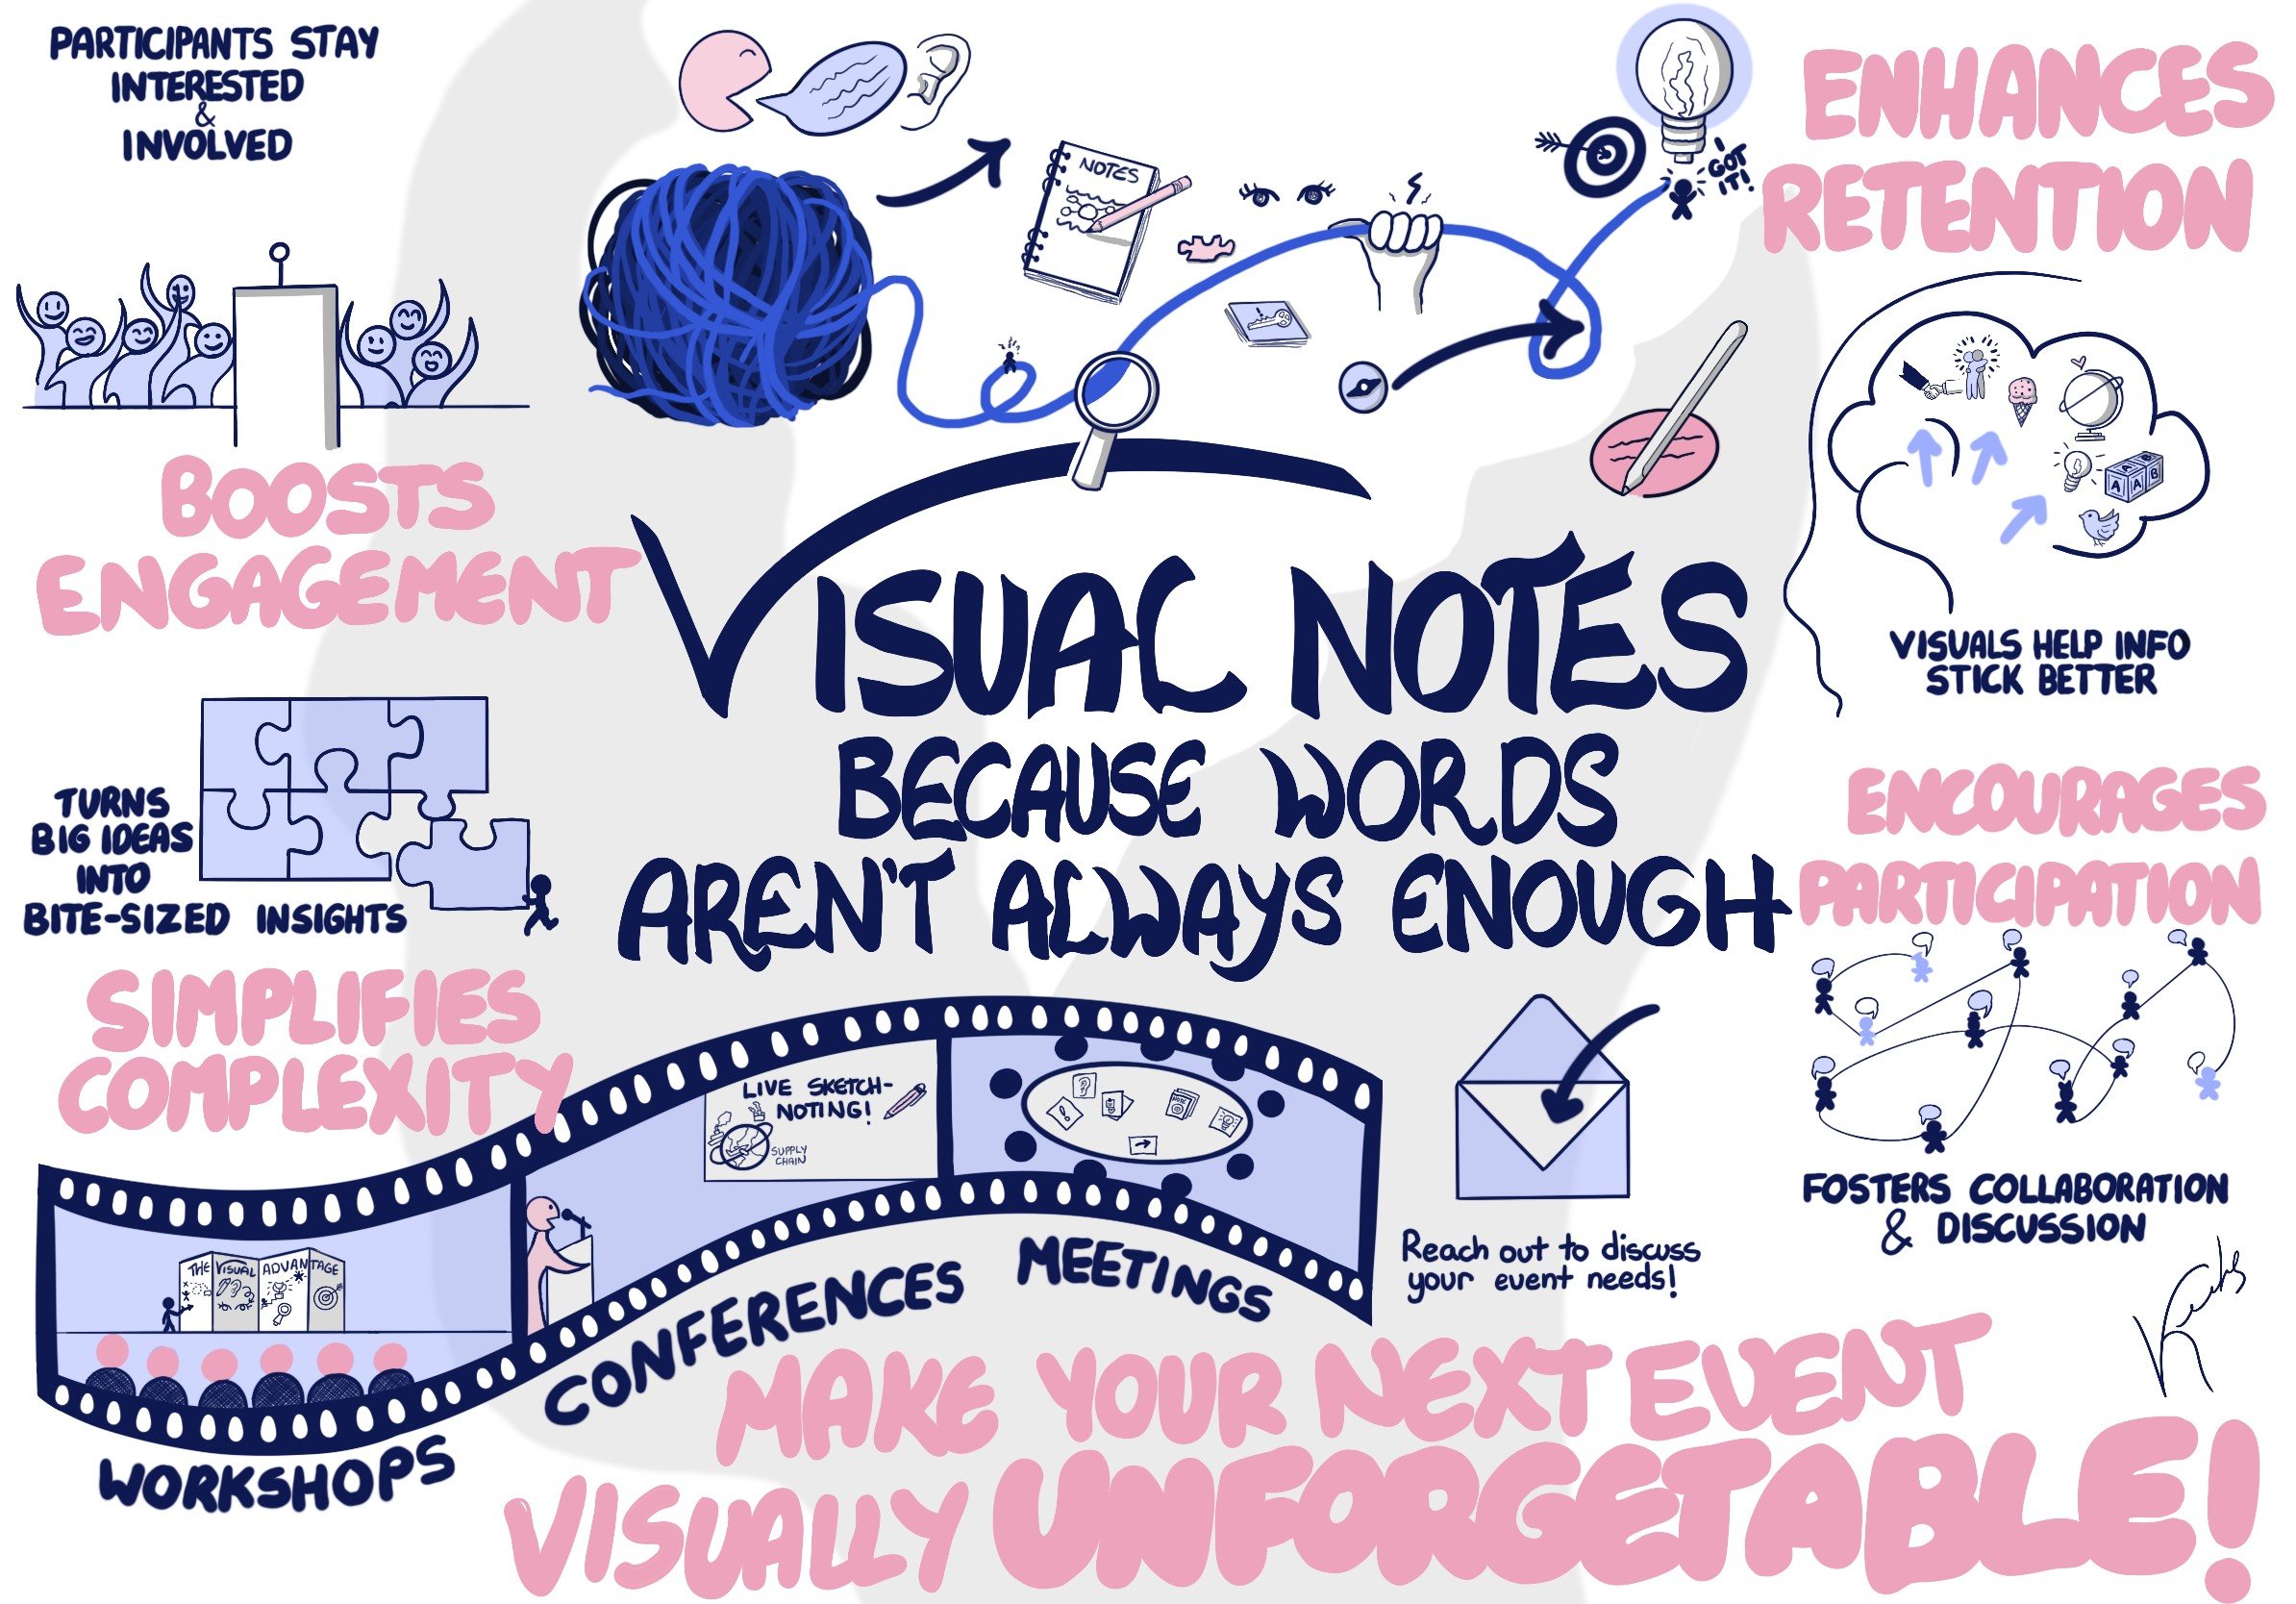 PARTICIPANTS STAY
INTERESTED
&
INVOLVED
BOOSTS
ENGAGEMENT
TURNS
BIG IDEAS
INTO
BITE-SIZED INSIGHTS
SIMPLIFIES
COMPLEXITY
NOTES
I
GOT
IT!
VISUAL NOTES
BECAUSE WORDS
AREN'T ALWAYS ENOUGH
ENHANCES
RETENTION
A B
A A B
VISUALS HELP INFO
STICK BETTER
ENCOURAGES
PARTICIPATION
FOSTERS COLLABORATION
& DISCUSSION
THE VISUAL ADVANTAGE
WORKSHOPS
LIVE SKETCH-
NOTING!
SUPPLY
CHAIN
CONFERENCES
?
!
NOTE
MEETINGS
Reach out to discuss
your event needs!
MAKE YOUR NEXT EVENT
VISUALLY UNFORGETABLE!